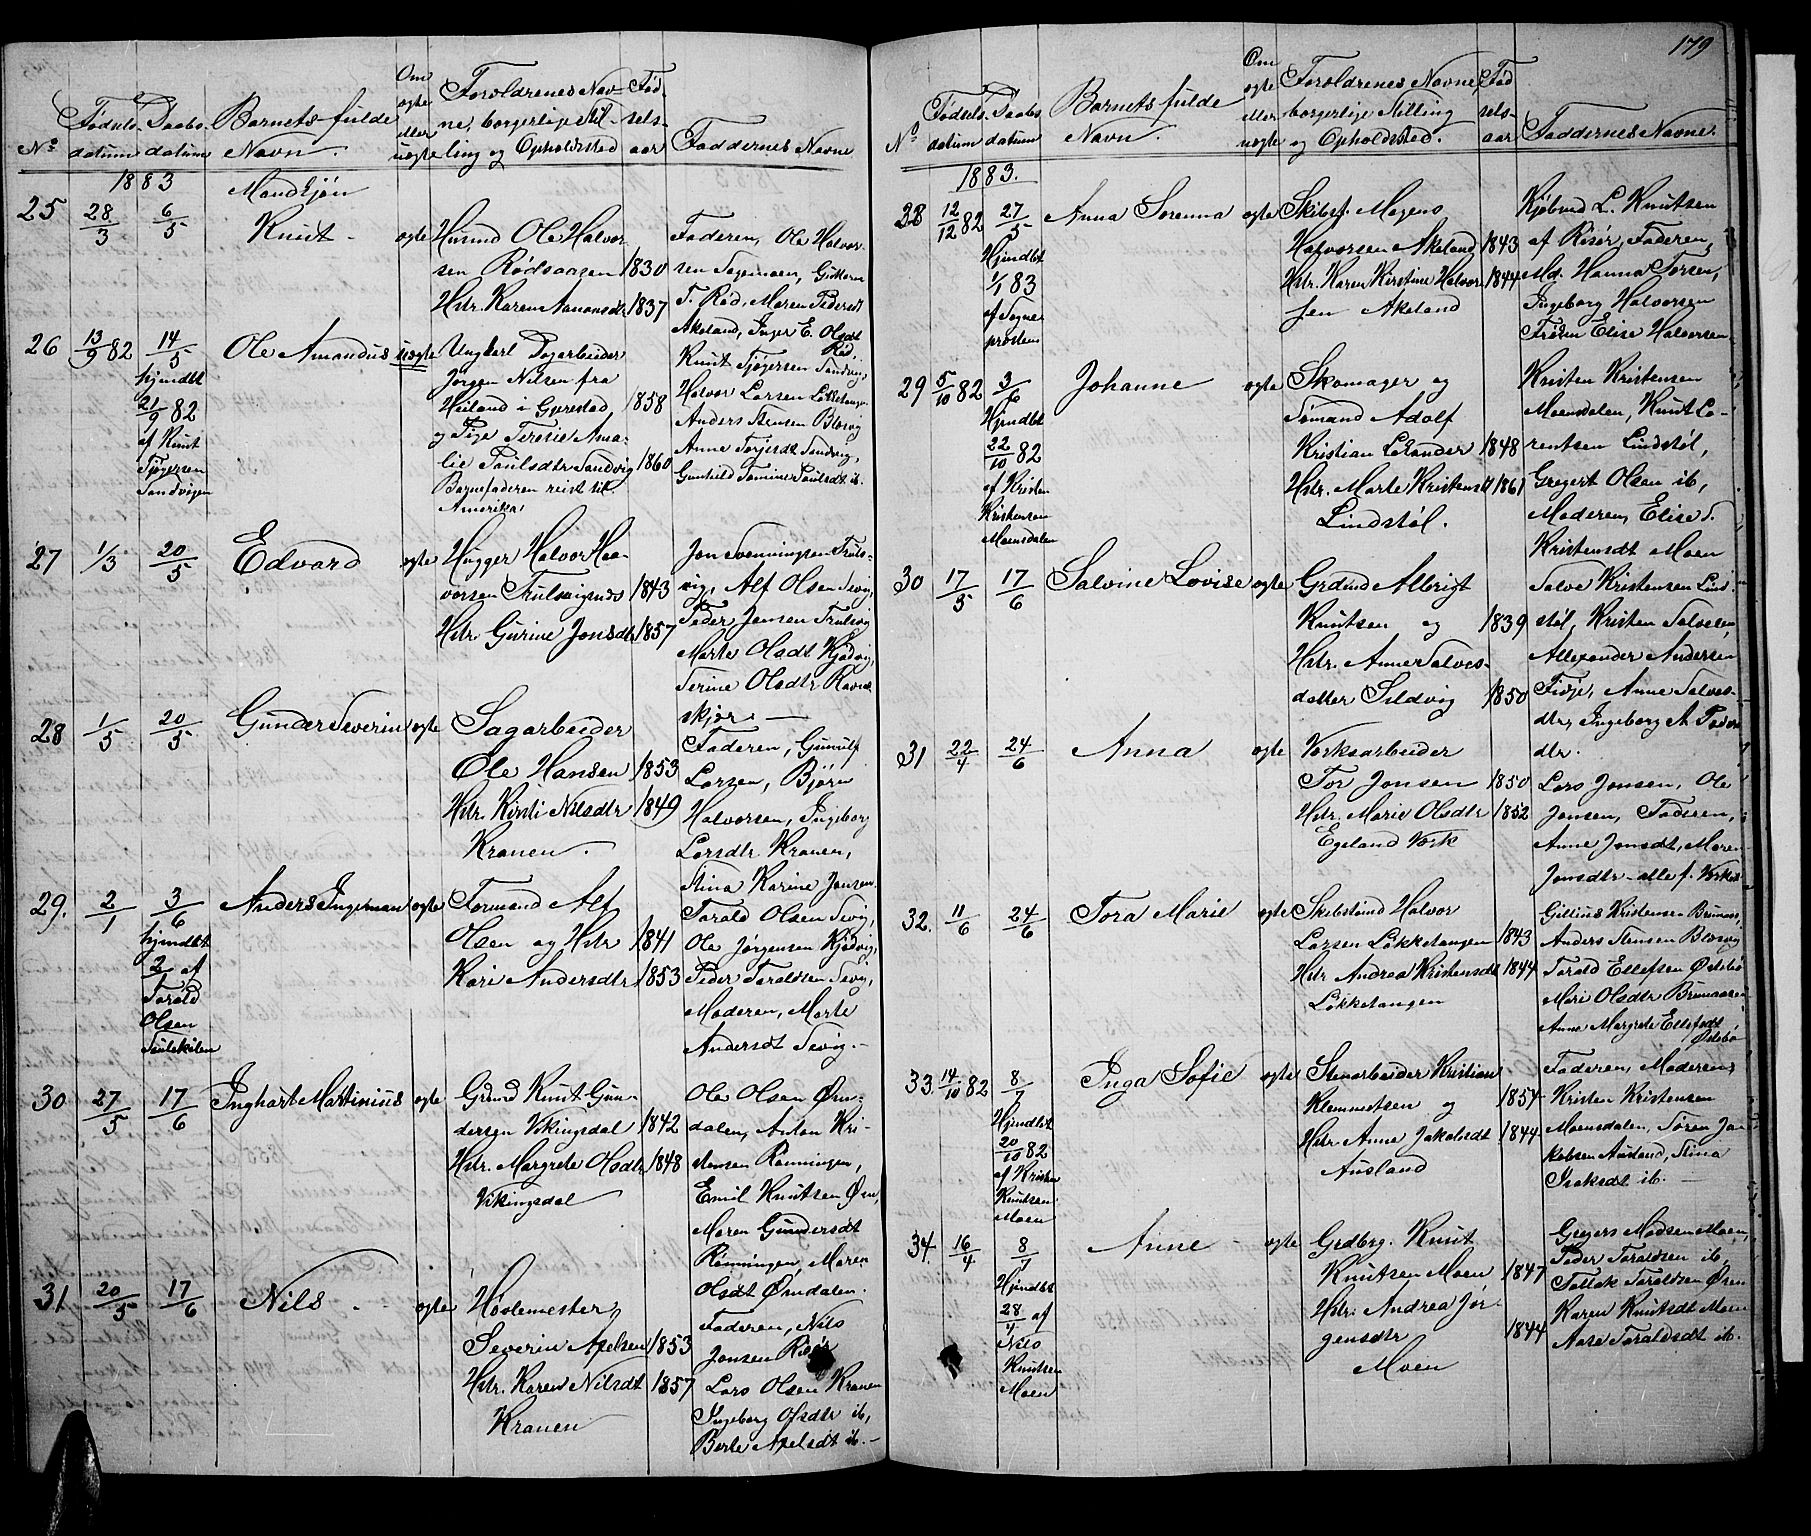 No
Fødsels-
datum
Daabs-
datum
Barnets fulde
Navn.
Om
ægte
eller
uægte
Forældrenes Nav-
ne, borgerlige Stil-
ling og Opholdssted
Fød-
sels-
aar
Faddernes Navne
1883
Mandkjøn
25
28/3
6/5
Knut -
ægte
Husmd Ole Halvor-
sen Rødsaasen 1830
Hstr. Karen Aanonsdtr 1837
Faderen, Ole Halvor-
sen Sagemoen, Guttorm
T. Rød, Maren Pedersdt
Akeland, Inger E. Olsdt
Rød.
26
13/9 82
14/5
hjemdbt
21/9 82
af Knut
Tjøgersen
Sandvigen
Ole Amandus
uægte
Ungkarl Dagarbeider
Jørgen Nilsen fra
Heiland i Gjerestad, 1858
og Pige Teresie Ama-
lie Poulsdtr Sandvig 1860
Barnefaderen reist til
Amerika.
Knut Tjøgersen Sandvig,
Halvor Larsen Løkketange
Anders Stensen Blosvig
Anne Torjesdt Sandvig,
Gunhild Tomine Poulsdt ib.
27
1/3
20/5
Edvard
ægte
Hugger Halvor Haa-
vorsen Trulsvignes 1843
Hstr. Gurine Jonsdtr 1857
Jon Svenningsen Truls-
vig, Alf Olsen Sevig,
Peder Jensen Trulsvig
Marte Olsdt Kjødvig,
Serine Olsdtr Ravne-
skjær -
28
1/5
20/5
Gunder Severin
ægte
Sagarbeider
Ole Hansen 1853
Hstr. Kirsti Nilsdtr 1849
Kranen.
Faderen, Gunulf
Larsen, Bjørn
Halvorsen, Ingeborg
Larsdtr Kranen,
Stina Karine Jensen
29.
2/1
3/6
hjemdbt
2/1 af
Tarald
Olsen
Anders Ingeman
ægte
Formand Alf
Olsen og Hstr 1841
Kari Andersdtr 1853
Tarald Olsen Sevig,
Ole Jørgensen Kjødvig,
Peder Taraldsen Sevig,
Moderen, Marte
Andersdt Sevig.-
30
27/5
17/6
Inghart Martinius
ægte
Grdmd Knut Gun-
dersen Vikingsdal 1842
Hstr. Margrete Olsdtr 1848
Vikingsdal
Ole Olsen Ørn-
dalen, Anton Kri-
stensen Rønningen,
Emil Knutsen Ørn,
Maren Gundersdt
Rønningen, Maren
Olsdt Ørndalen.
31
20/5
17/6
Nils -
ægte
Høvlemester
Severin Axelsen 1853
Hstr. Karen Nilsdt 1857
Kranen
Faderen, Nils
Jonsen Risør
Lars Olsen Kranen
Ingeborg Olsdtr ib,
Berte Axelsdt ib.-
179
No
Fødsels-
datum
Daabs-
datum
Barnets fulde
Navn.
Om
ægte
eller
uægte
Forældrenes Navne,
borgerlige Stilling
og Opholdssted.
Fød-
sels-
aar
Faddernes Navne.
1883.
28
12/12 82
27/5
Hjemdbt
1/1 83
af Sogne-
presten
Anna Sorenna
ægte
Skibsf. Mogens
Halvorsen Akeland 1843
Hstr. Karen Kirstine Halvor- 1844
sen Akeland
Kjøbmd L. Knutsen
af Risør, Faderen,
Md. Hanna Torsen,
Ingeborg Halvorsen
Frøken Elise Halvorsen
29
5/10 82
3/6
Hjemdbt
22/10 82
af Kristen
Kristensen
Moensdalen
Johanne
ægte
Skomager og
Sømand Adolf
Kristian Lolander 1848
Hstr. Marte Kristensdt 1861
Lindstøl.
Kristen Kristensen
Moensdalen, Knut Lo-
rentsen Lindstøl,
Gregert Olsen ib,
Moderen, Elise S.
Kristensdt Moen
30
17/5
17/6
Salvine Lovise
ægte
Grdmd Albrigt
Knutsen og 1839
Hstr. Anne Salves-
datter Sildvig 1850
Salve Kristensen Lind-
støl, Kristen Salvesen,
Allexander Andersen
Fidje, Anne Salves-
dtr, Ingeborg A. Peders-
dtr.
31
22/4
24/6
Anna
ægte
Værksarbeider
Tor Jonsen 1850
Hstr. Marie Olsdtr 1852
Egeland Værk
Lars Jonsen, Ole
Jonsen, Faderen,
Anne Jonsdt, Maren
Jonsdtr - alle f. Værket
32.
11/6
24/6
Tora Marie
ægte
Skibstømd Halvor
Larsen Løkketangen 1843
Hstr Andrea Kristensdt 1844
Løkketangen
Gillius Kristensen Brunaas,
Anders Stensen Blosvig
Tarald Ellefsen Østebø
Mari Olsdtr Brunaasen
Anne Margrete Ellefsdt
Østebø
33.
14/10 82
8/7
Hjemdbt
20/10 82
af Kristen
Knutsen
Moen
Inga Sofie
ægte
Stenarbeider Kristian
Klemmetsen og 1854
Hstr Anne Jakobsdt 1844
Ausland
Faderen, Moderen,
Kristen Kristensen
Moensdalen, Søren Ja-
kobsen Ausland, Stina
Isaksdt ib. -
34.
16/4
8/7
Hjemdbt
28/4 af
Nils
Knutsen
Moen
Anne -
ægte
Grdbrg. Knut
Knutsen Moen 1847
Hstr. Andrea Jør-
gensdtr 1844
Moen
Gregers Madsen Moen,
Peder Taraldsen ib,
Tallak Taraldsen Ørn
Karen Knutsdt Moen
Aase Taraldsdt ib.